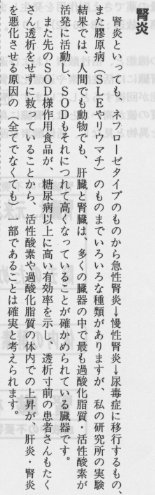 腎炎
腎炎といっても、ネフローゼタイプのものから急性腎炎→慢性腎炎→尿毒症に移行するもの、
また膠原病（ＳＬＥやリウマチ）のものまでいろいろな種類がありますが、私の研究所の実験
結果では、人間でも動物でも、肝臓と腎臓は、多くの臓器の中で最も過酸化脂質・活性酸素が
活発に活動し、ＳＯＤもそれにつれて高くなっていることが確かめられている臓器です。
また先のＳＯＤ様作用食品が、糖尿病以上に高い有効率を示し、透析寸前の患者さんもたく
さん透析をせずに救っていることから、活性酸素や過酸化脂質の体内での上昇が、肝炎・腎炎
を悪化させる原因の（全てでなくても）一部であることは確実と考えられます。